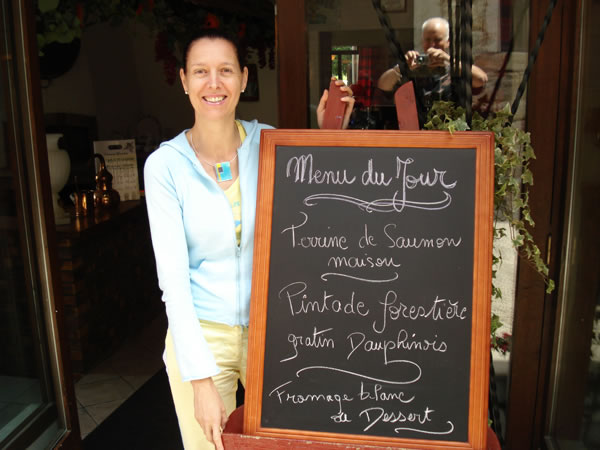 Menu du Jour
Terrine de Saumon
maison
Pintade forestière
gratin Dauphinois
Fromage blanc
ou Dessert